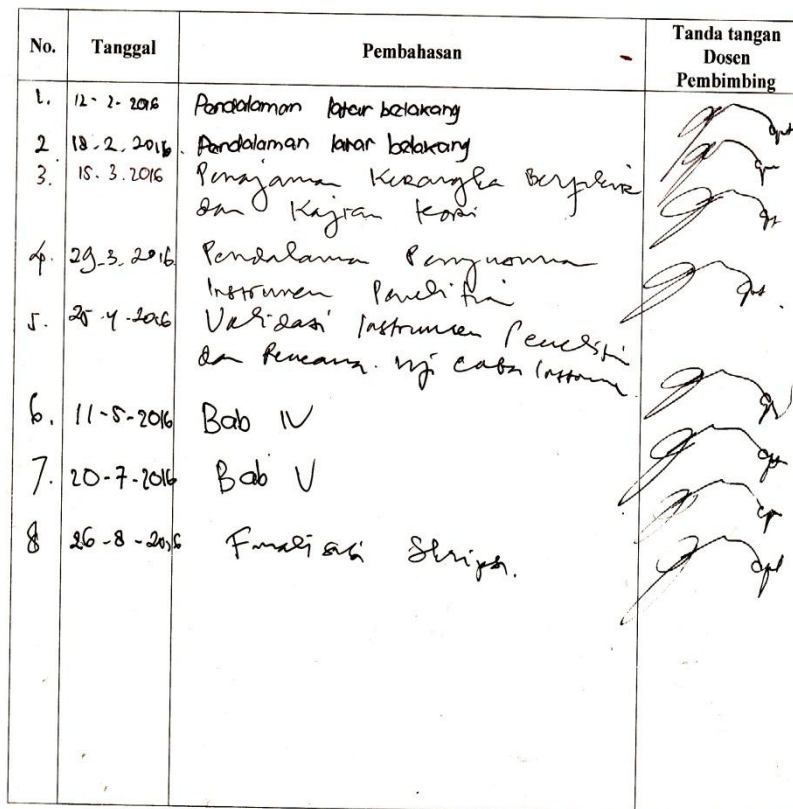 No. Tanggal Pembahasan Tanda tangan
Dosen
Pembimbing
1. 12-2-2016 Pendalaman latar belakang
2 18.2.2016. Pendalaman latar belakang
3. 15.3.2016 Penajaman Kerangka Berpikir
dan Kajian teori
4. 29.3.2016. Pendalaman Penyusunan
Instrumen Penelitian
5. 25-4-2016 Validasi Instrumen Penelitian
dan Rencana Uji coba Instrumen
6. 11-5-2016 Bab IV
7. 20-7-2016 Bab V
8 26-8-2016 Finalisasi Skripsi.